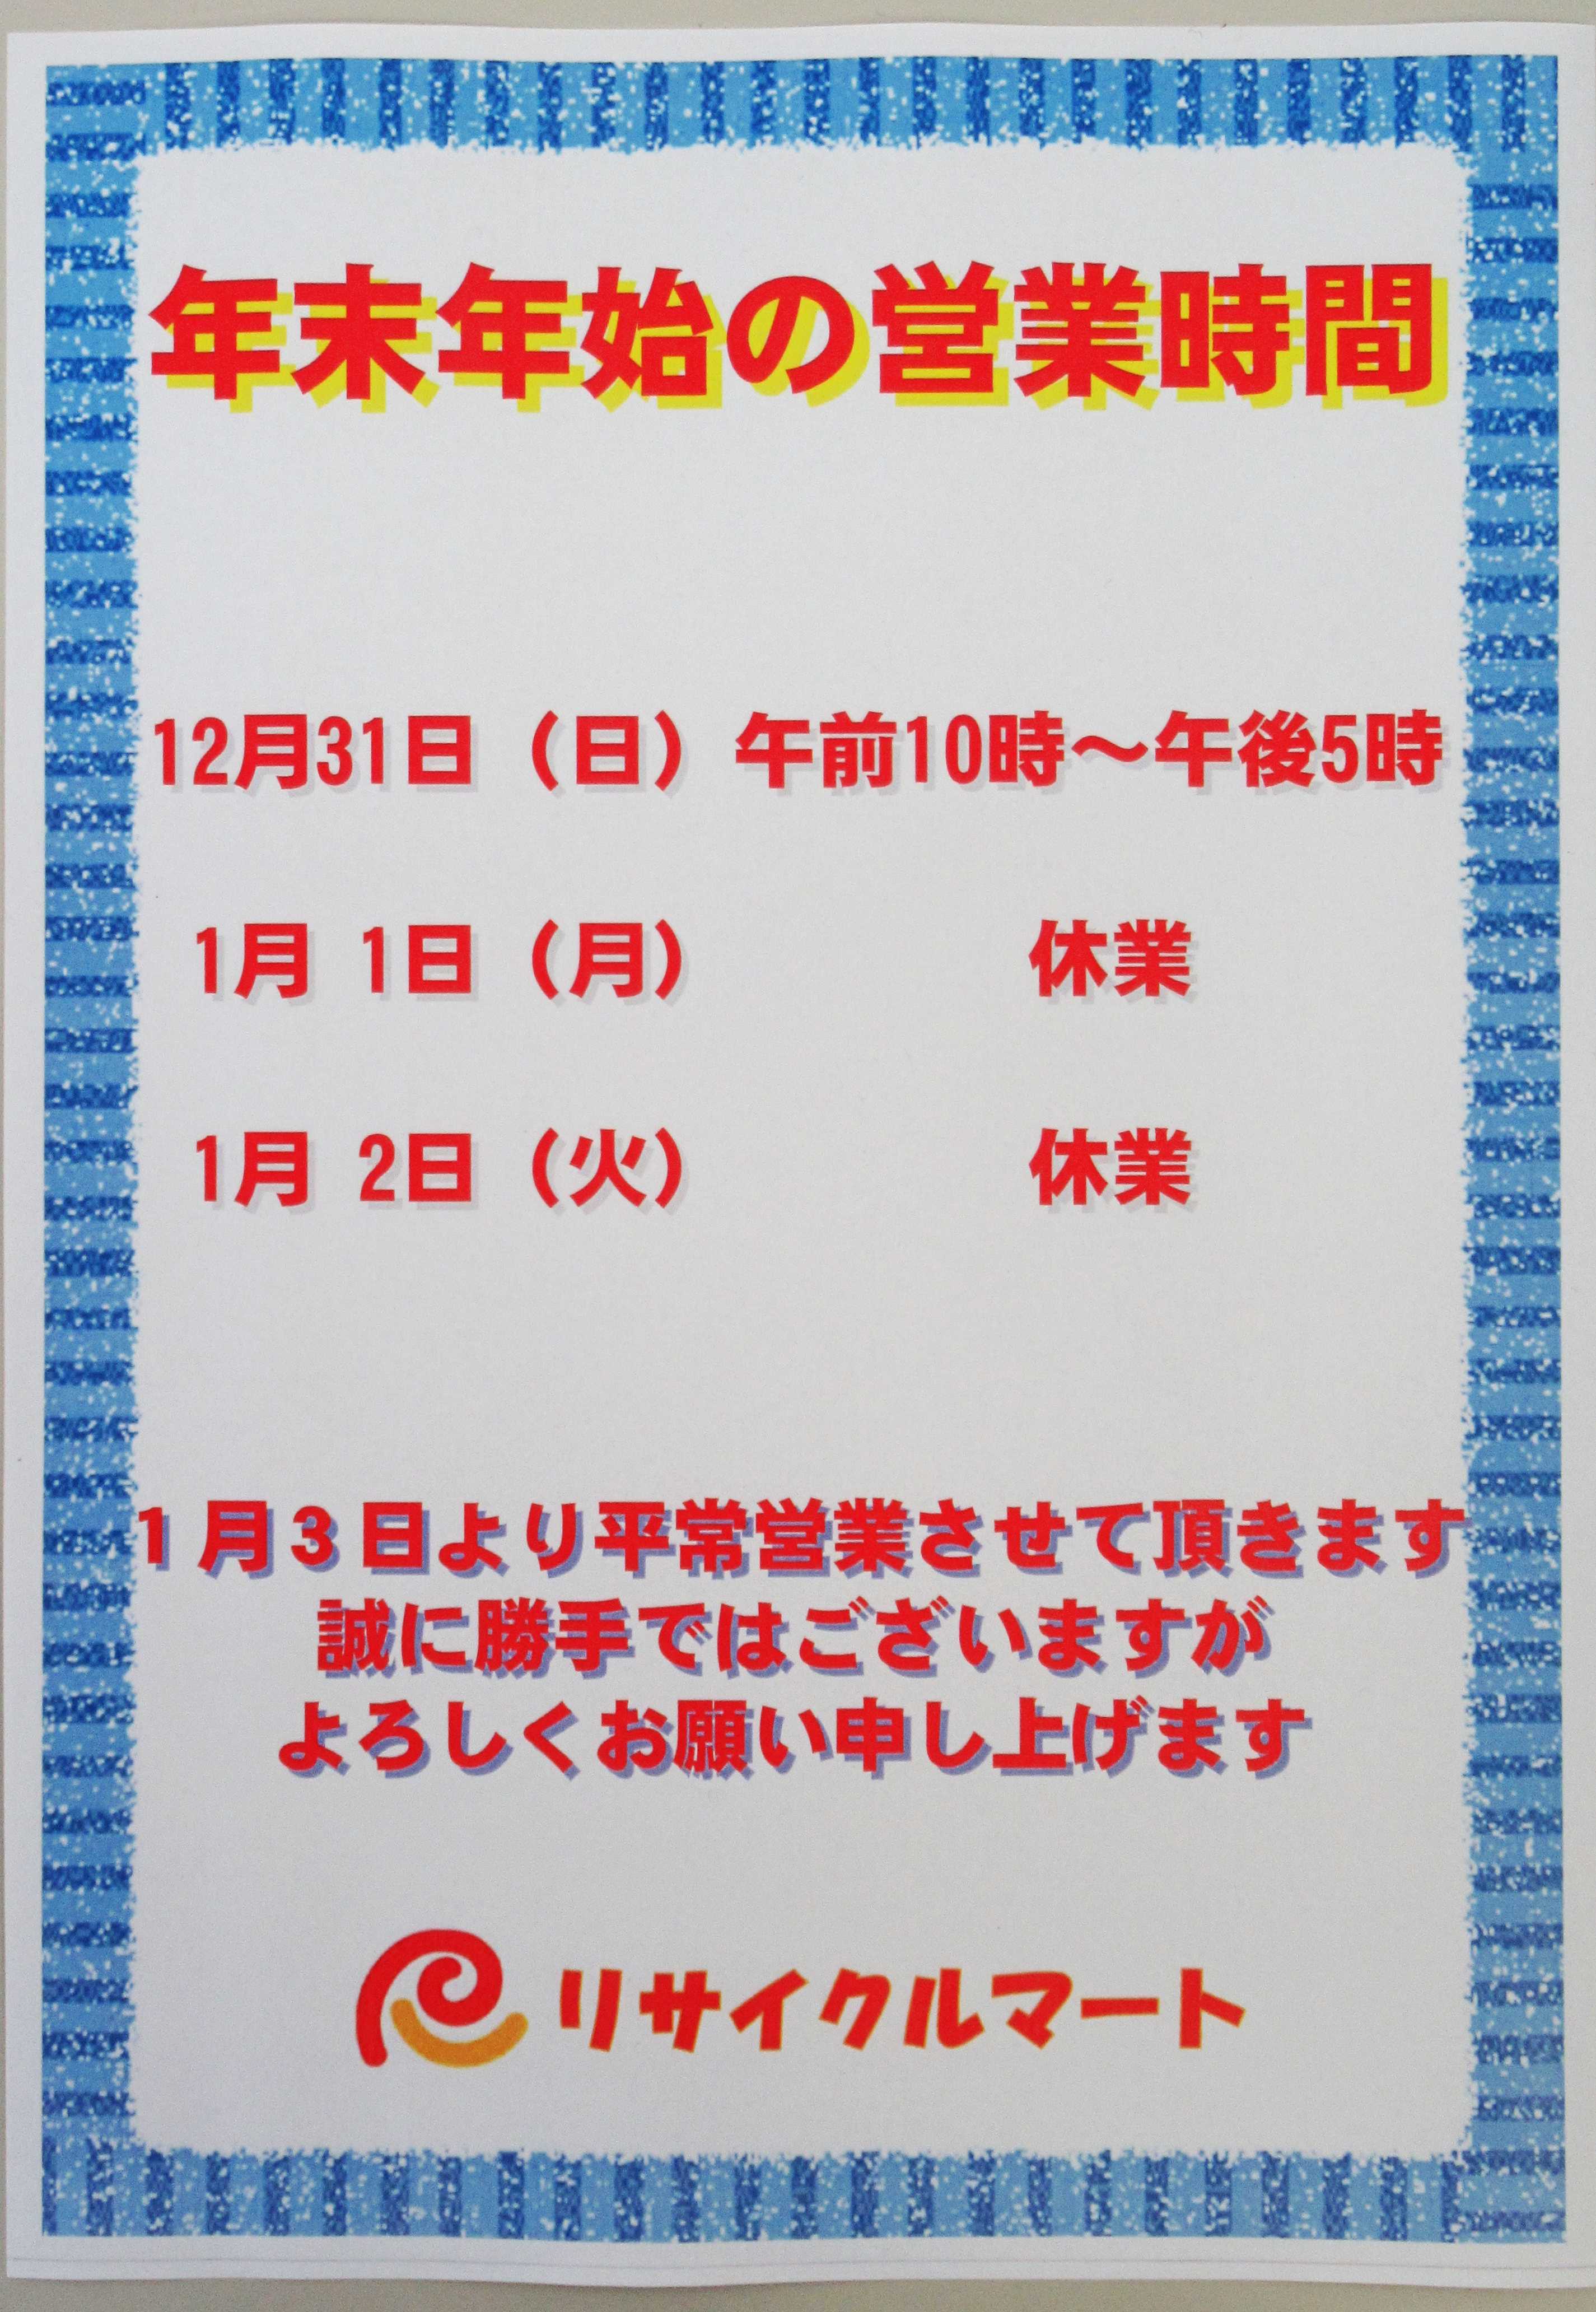 年末年始の営業時間
12月31日（日）午前10時～午後5時
1月 1日（月） 休業
1月 2日（火） 休業
１月３日より平常営業させて頂きます
誠に勝手ではございますが
よろしくお願い申し上げます
リサイクルマート